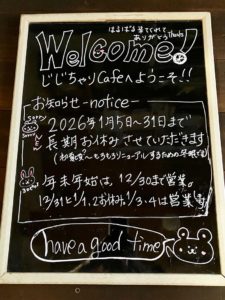 はるばる来てくれて
ありがとう Thanks
Welcome!
じじちゃりCafeへようこそ!!
お知らせ-notice-
2026年1月5日〜31日まで
長期お休みさせていただきます
するための冬眠です
年末年始は、12/30まで営業。
12/31と1/1.2お休み。1/3.4は営業です
have a good time